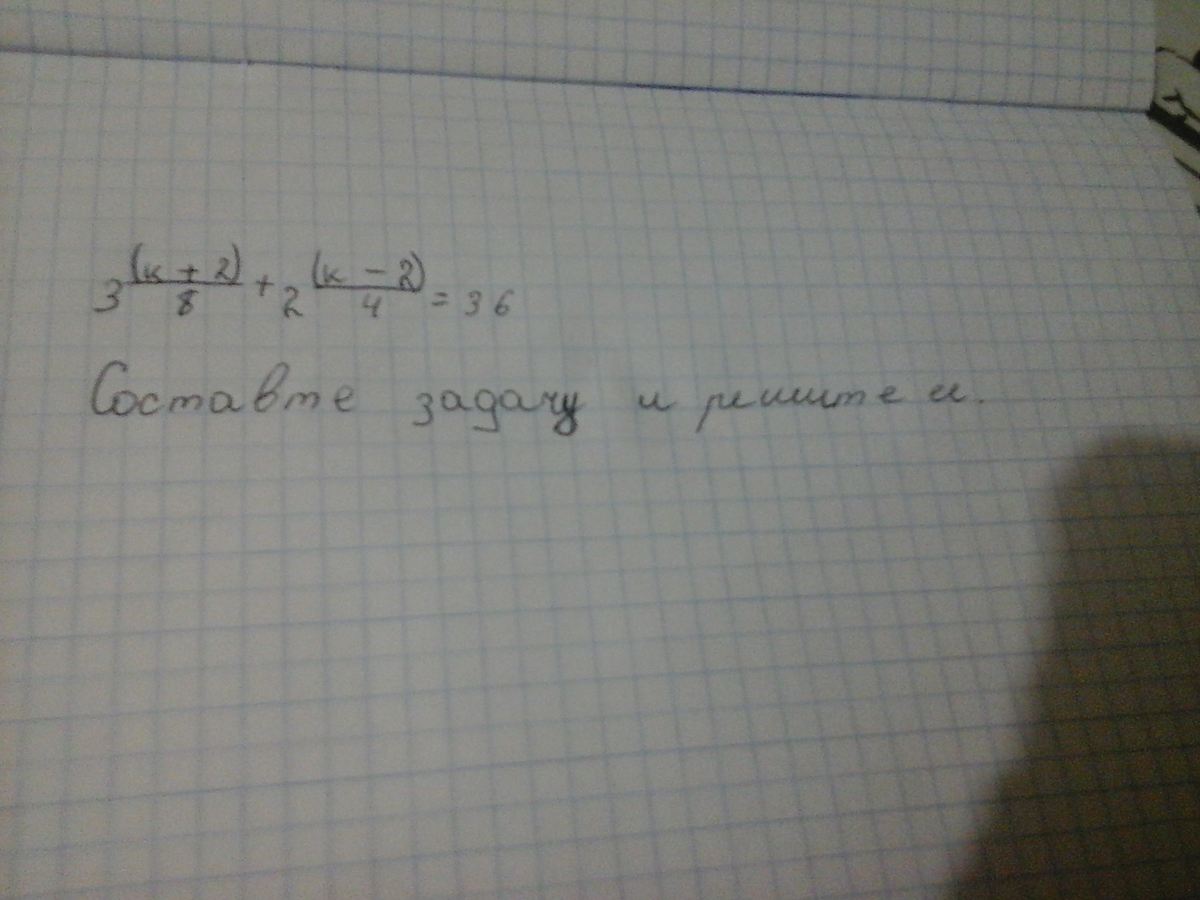 3 (к + 2)/8 + 2 (к - 2)/4 = 36
Составте задачу и решите и.